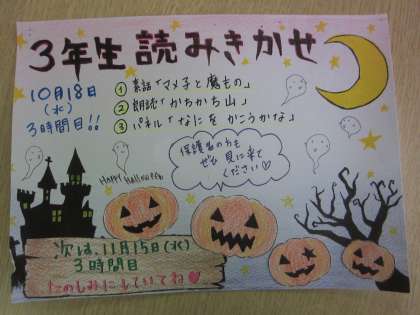 3年生読みきかせ
10月18日
(水)
3時間目!!
① 素話「マメ子と魔もの」
② 朗読「かちかち山」
③ パネル「なにを かこうかな」
保護者の方も
ぜひ 見に来て
ください♡
Happy Halloween
次は、11月15日(水)
3時間目
たのしみにしていてね♡